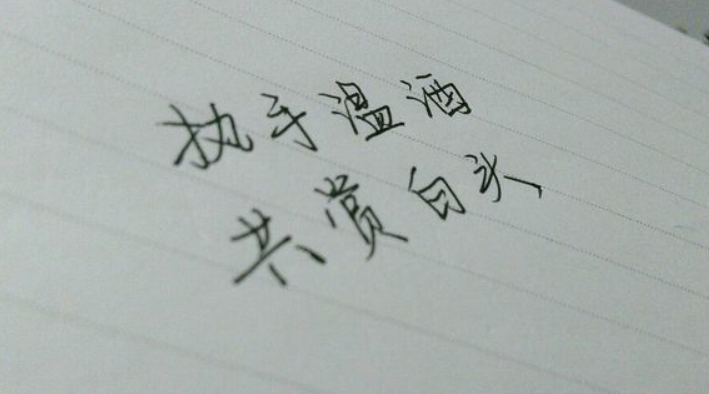 执手温酒
共赏白头